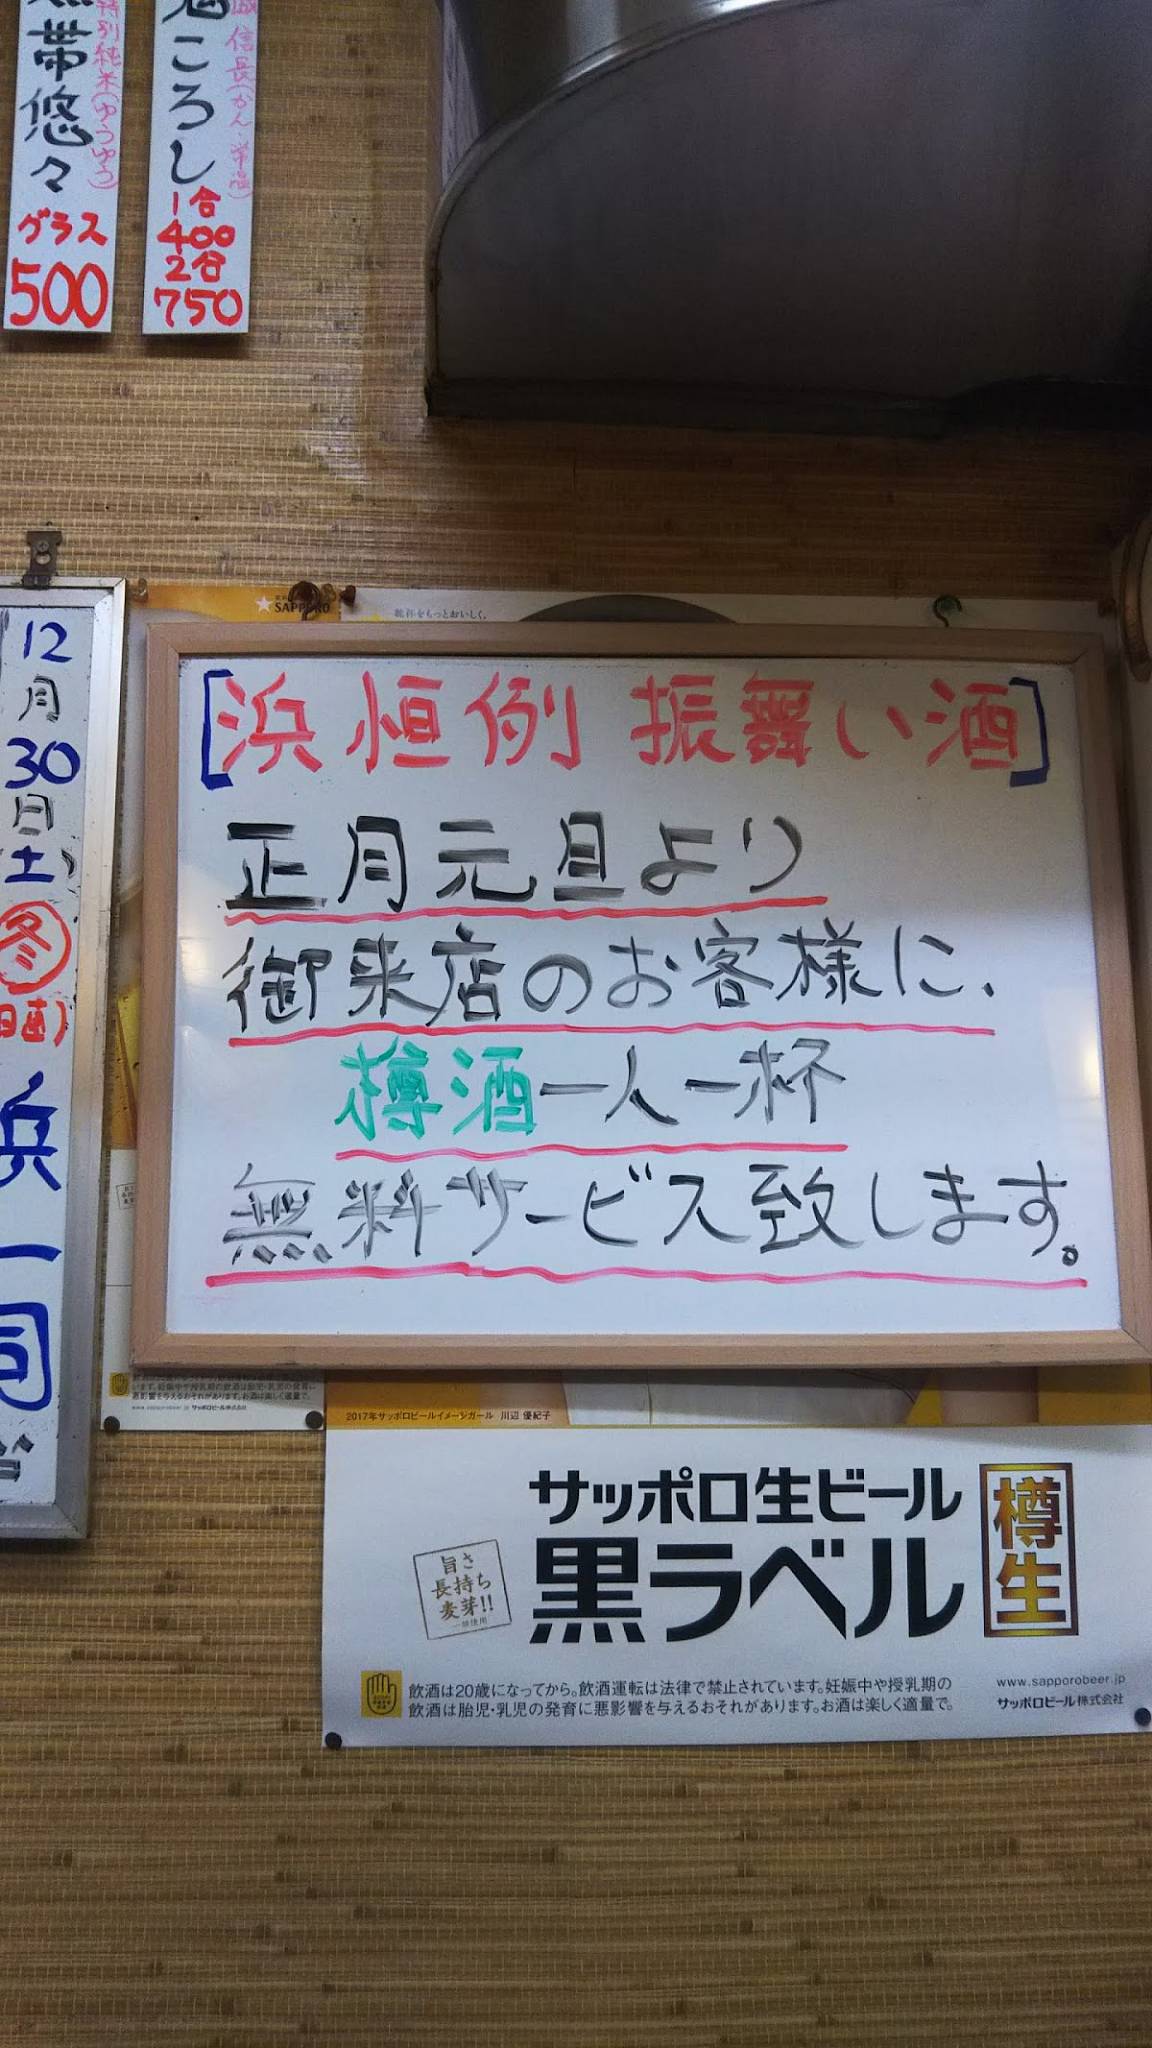 帯悠々
特別純米(ゆうゆう)
グラス
500
鬼ころし
信長(かん・常温)
1合
400
2合
750
12
月
30
日
土
冬
浜
一
同
SAPPORO
乾杯をもっとおいしく。
[浜恒例 振舞い酒]
正月元旦より
御来店のお客様に、
樽酒一人一杯
無料サービス致します。
www.sapporobeer.jp サッポロビール株式会社
2017年サッポロビールイメージガール 川辺 優紀子
サッポロ生ビール
黒ラベル
樽生
旨さ
長持ち
麦芽!!
一部使用
飲酒は20歳になってから。飲酒運転は法律で禁止されています。妊娠中や授乳期の
飲酒は胎児・乳児の発育に悪影響を与えるおそれがあります。お酒は楽しく適量で。
www.sapporobeer.jp
サッポロビール株式会社